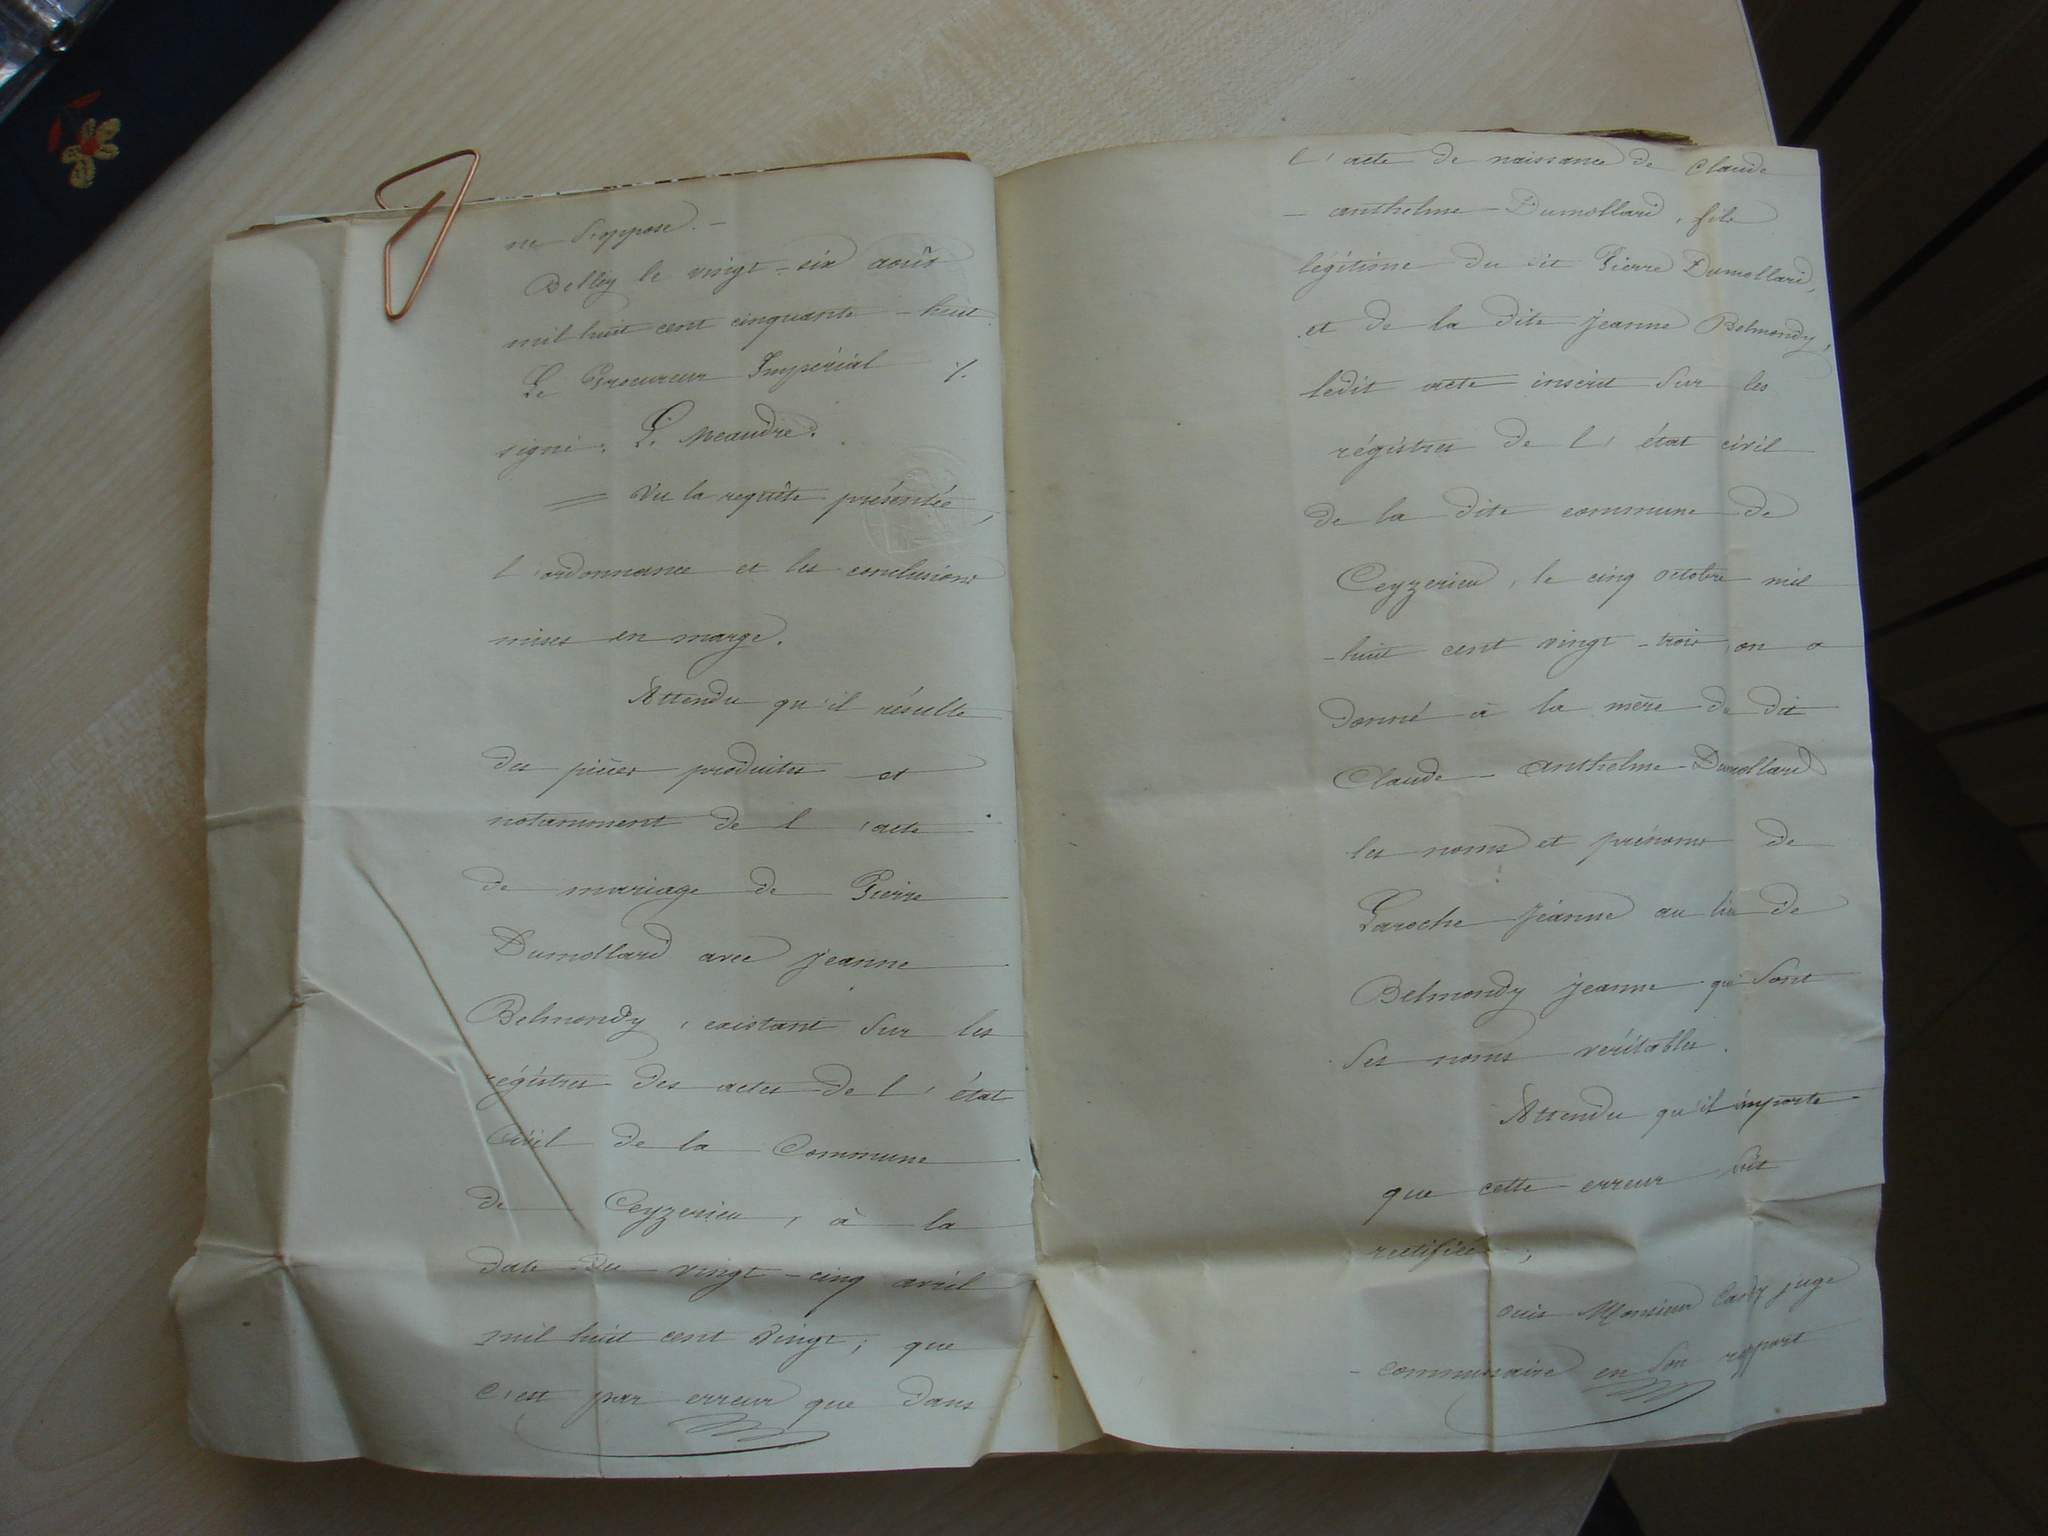 ne s'oppose. -
Belley le vingt-six août
mil huit cent cinquante-huit
Le Procureur Impérial ./.
signé: L. Meaudre.
= Vu la requête présentée,
l'ordonnance et les conclusions
mises en marge.
Attendu qu'il résulte
des pièces produites et
notamment de l'acte
de mariage de Pierre
Dumollard avec Jeanne
Belmondy, existant sur les
régistres des actes de l'état
Civil de la Commune
de Ceyzerieu, à la
date du vingt-cinq avril
mil huit cent vingt; que
c'est par erreur que dans
l'acte de naissance de Claude
- anthelme Dumollard, fils
légitime du dit Pierre Dumollard,
et de la dite Jeanne Belmondy,
ledit acte inscrit sur les
régistres de l'état civil
de la dite commune de
Ceyzerieu, le cinq octobre mil
-huit cent vingt-trois, on a
donné à la mère de dit
Claude-anthelme Dumollard
les noms et prénoms de
Laroche Jeanne au lieu de
Belmondy Jeanne qui sont
ses noms véritables.
Attendu qu'il importe
que cette erreur soit
rectifiée;
ouis Monsieur juge
- commissaire en son rapport